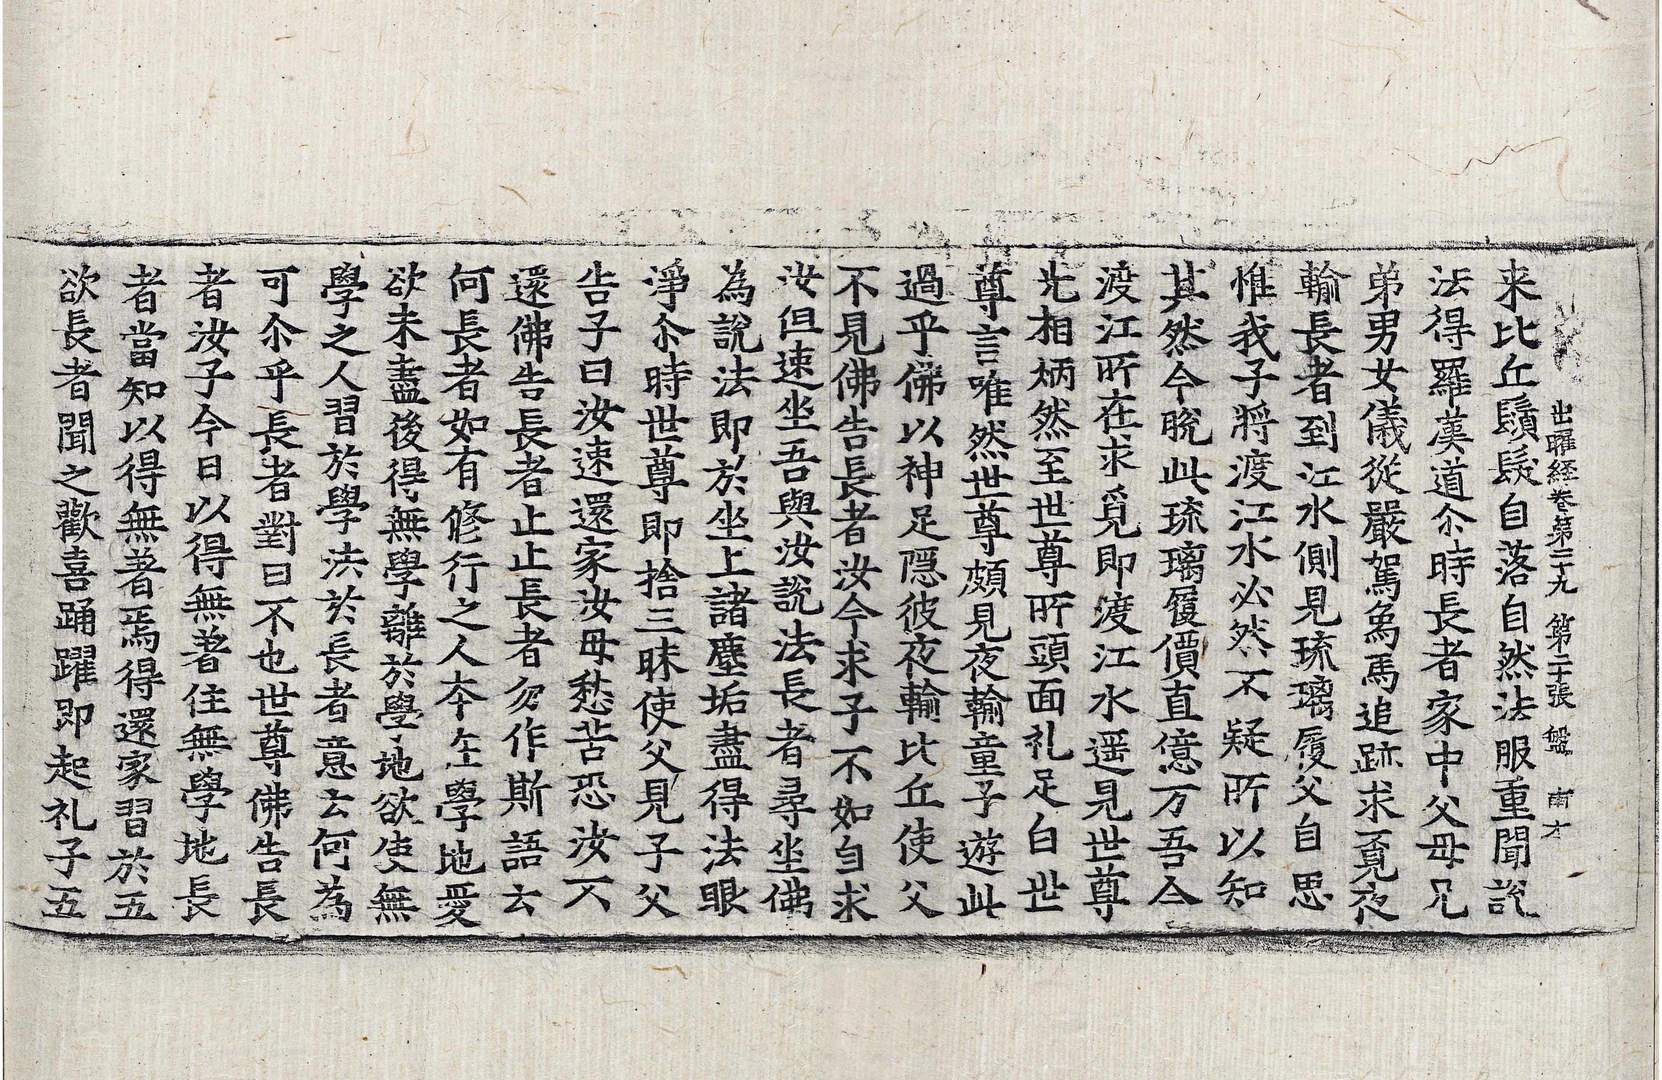 出曜経巻第二十九 第二十張 盤 南才
来比丘鬚髮自落自然法服重聞說
法得羅漢道尒時長者家中父母兄
弟男女儀從嚴駕象馬追跡求覓夜
輸長者到江水側見琉璃履父自思
惟我子將渡江水必然不疑所以知
其然今晥此琉璃履價直億万吾今
渡江所在求覓即渡江水遥見世尊
光相炳然至世尊所頭面礼足白世
尊言唯然世尊頗見夜輸童子遊此
過乎佛以神足隱彼夜輸比丘使父
不見佛告長者汝今求子不如自求
汝但速坐吾與汝說法長者尋坐佛
為說法即於坐上諸塵垢盡得法眼
淨尒時世尊即捨三昧使父見子父
告子曰汝速還家汝母愁苦恐汝不
還佛告長者止止長者勿作斯語云
何長者如有修行之人本在學地愛
欲未盡後得無學離於學地欲使無
學之人習於學法於長者意云何為
可尒乎長者對曰不也世尊佛告長
者汝子今日以得無著住無學地長
者當知以得無著焉得還家習於五
欲長者聞之歡喜踊躍即起礼子五